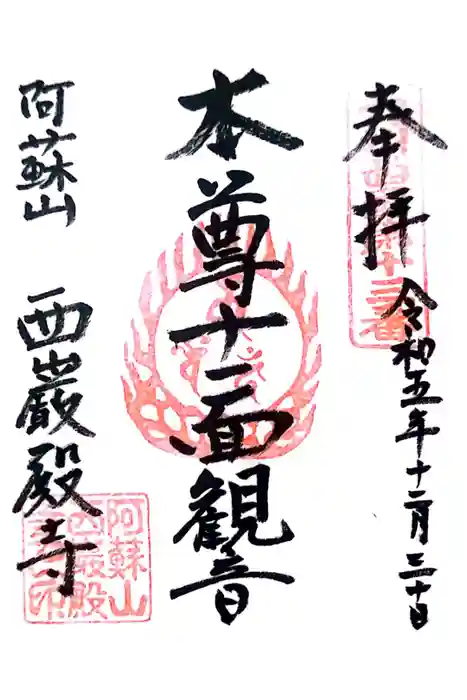 奉拝
令和五年十二月三十日
本尊十一面観音
阿蘇山
西巖殿寺
阿蘇山
西巖殿
寺印